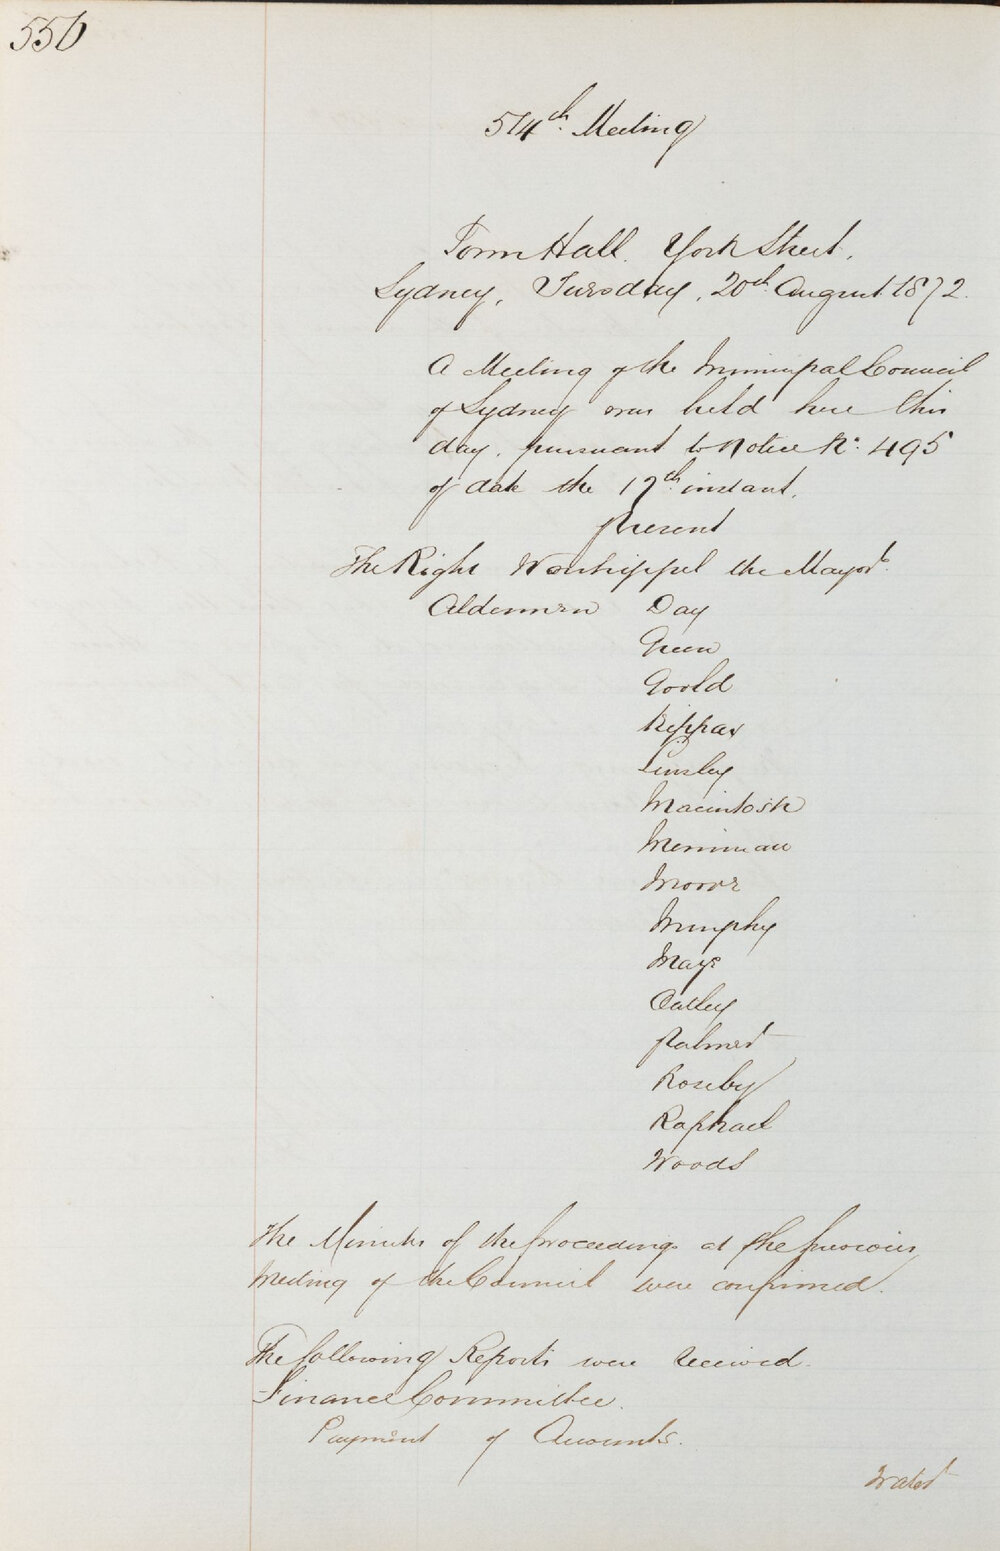 556
514th Meeting
Town Hall. York Street.
Sydney, Tuesday, 20th August 1872.
A Meeting of the Municipal Council
of Sydney was held here this
day, pursuant to Notice No. 495
of date the 17th instant.
Present
The Right Worshippful the Mayor.
Aldermen Day
Green
Goold
Kippax
Linsley
Macintosh
Merriman
Moore
Murphy
Mayo
Oatley
Palmer
Roseby
Raphael
Woods
The Minutes of the proceedings at the previous
Meeting of the Council were confirmed.
The following Reports were received.
Finance Committee.
Payment of Accounts.
Water